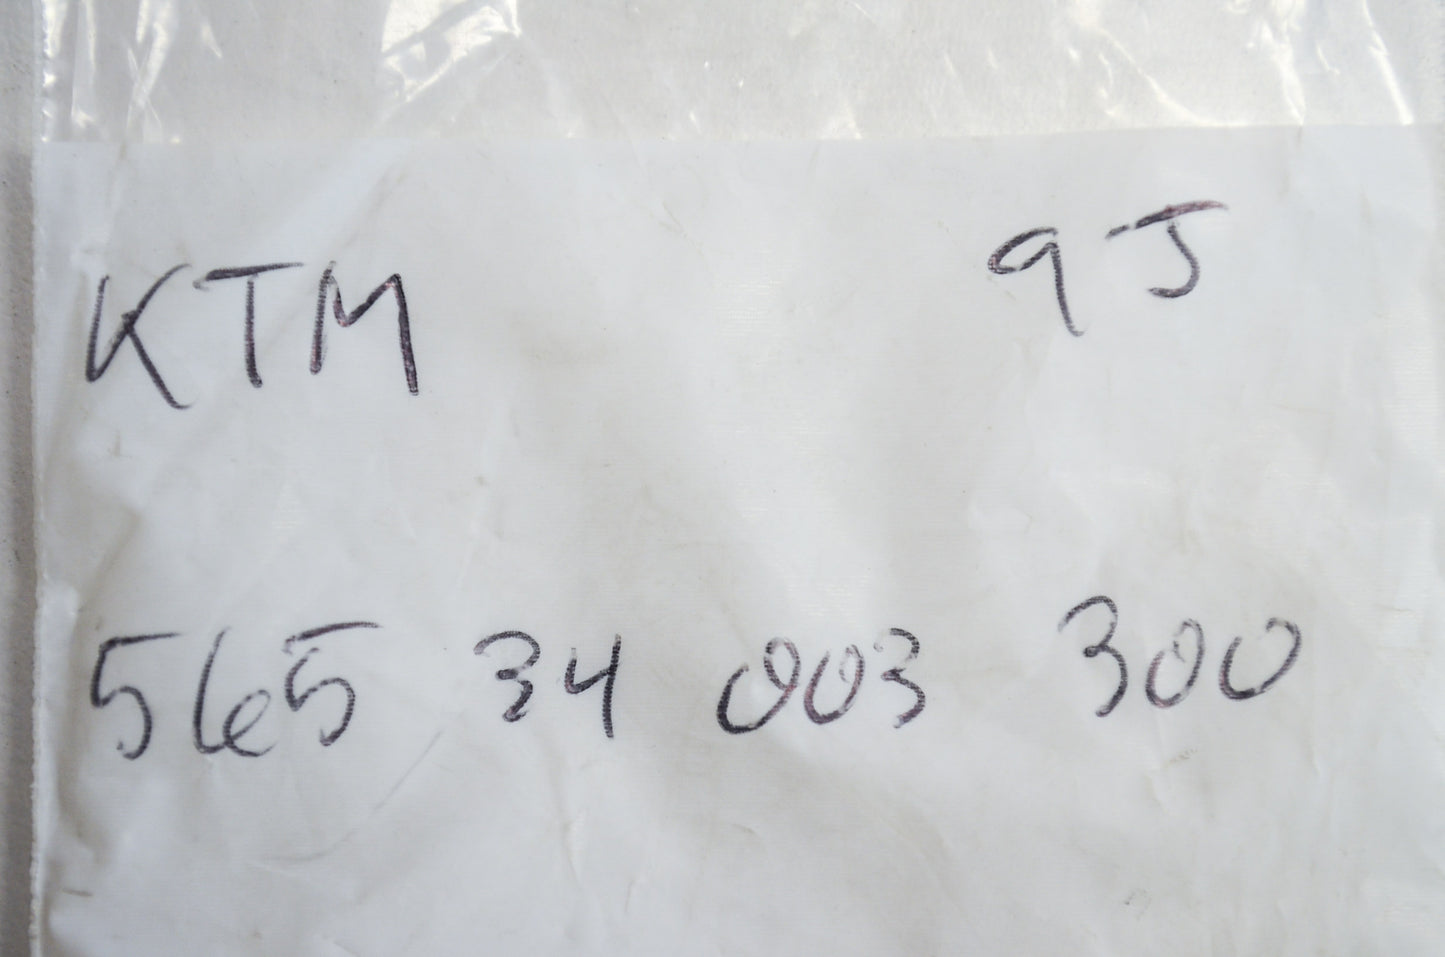 KTM 9J
565 34 003 300